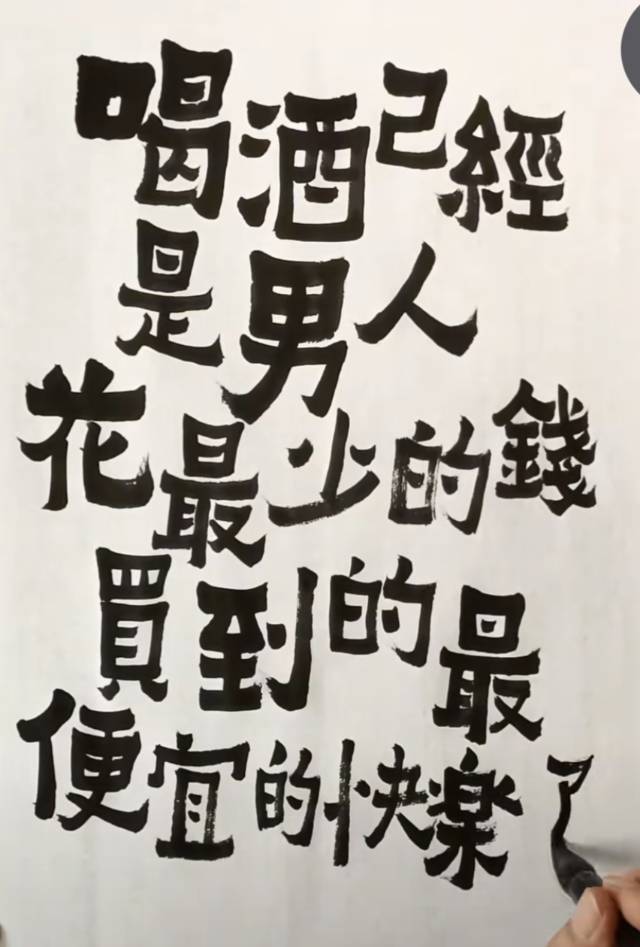 喝酒已經
是男人
花最少的錢
買到的最
便宜的快樂了